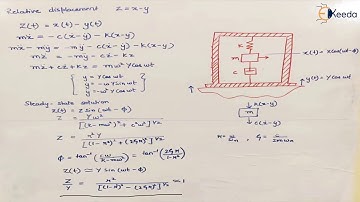 Relative displacement Z = x-y
Z(t) = x(t) - y(t)
mẍ = -c(ẋ-ẏ) - k(x-y)
mẍ - mÿ = -mÿ - c(ẋ-ẏ) - k(x-y)
mz̈ = -mÿ - cż - kz
mz̈ + cż + kz = mω²Y cos ωt
y = Y cos ωt
ẏ = -ωY sin ωt
ÿ = -ω²Y cos ωt
Steady-State solution
Z(t) = Z Sin (ωt - ϕ)
Z = Yω² / [(k-mω²)² + c²ω²]^1/2
Z = r²Y / [(1-r²)² + (2ζr)²]^1/2
ϕ = tan⁻¹ (cω / k-mω²) = tan⁻¹ (2ζr / 1-r²)
Z(t) = Y Sin (ωt - ϕ)
Z/Y = r² / [(1-r²)² - (2ζr)²]^1/2 = 1
K
m
c
x(t) = X cos(ωt-ϕ)
y(t) = Y cos ωt
k(x-y)
m
c(ẋ-ẏ)
Ekeeda